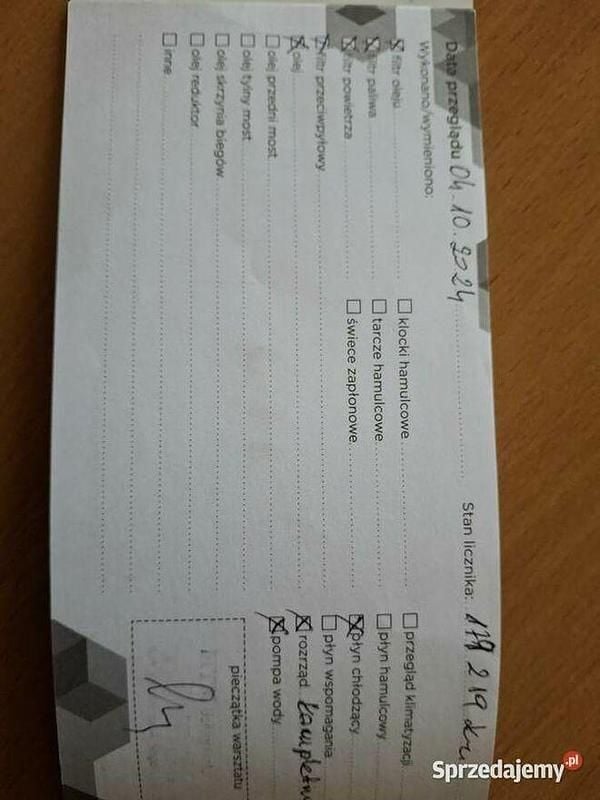 Data przeglądu 04.10.2024 Stan licznika: 179 219 km
Wykonano/wymieniono:
filtr oleju
filtr paliwa
filtr powietrza
filtr przeciwpyłowy
olej
olej przedni most
olej tylny most
olej skrzynia biegów
olej reduktor
inne
klocki hamulcowe
tarcze hamulcowe
świece zapłonowe
przegląd klimatyzacji
płyn hamulcowy
płyn chłodzący
płyn wspomagania
rozrząd
pompa wody
pieczątka warsztatu
Sprzedajemy.pl